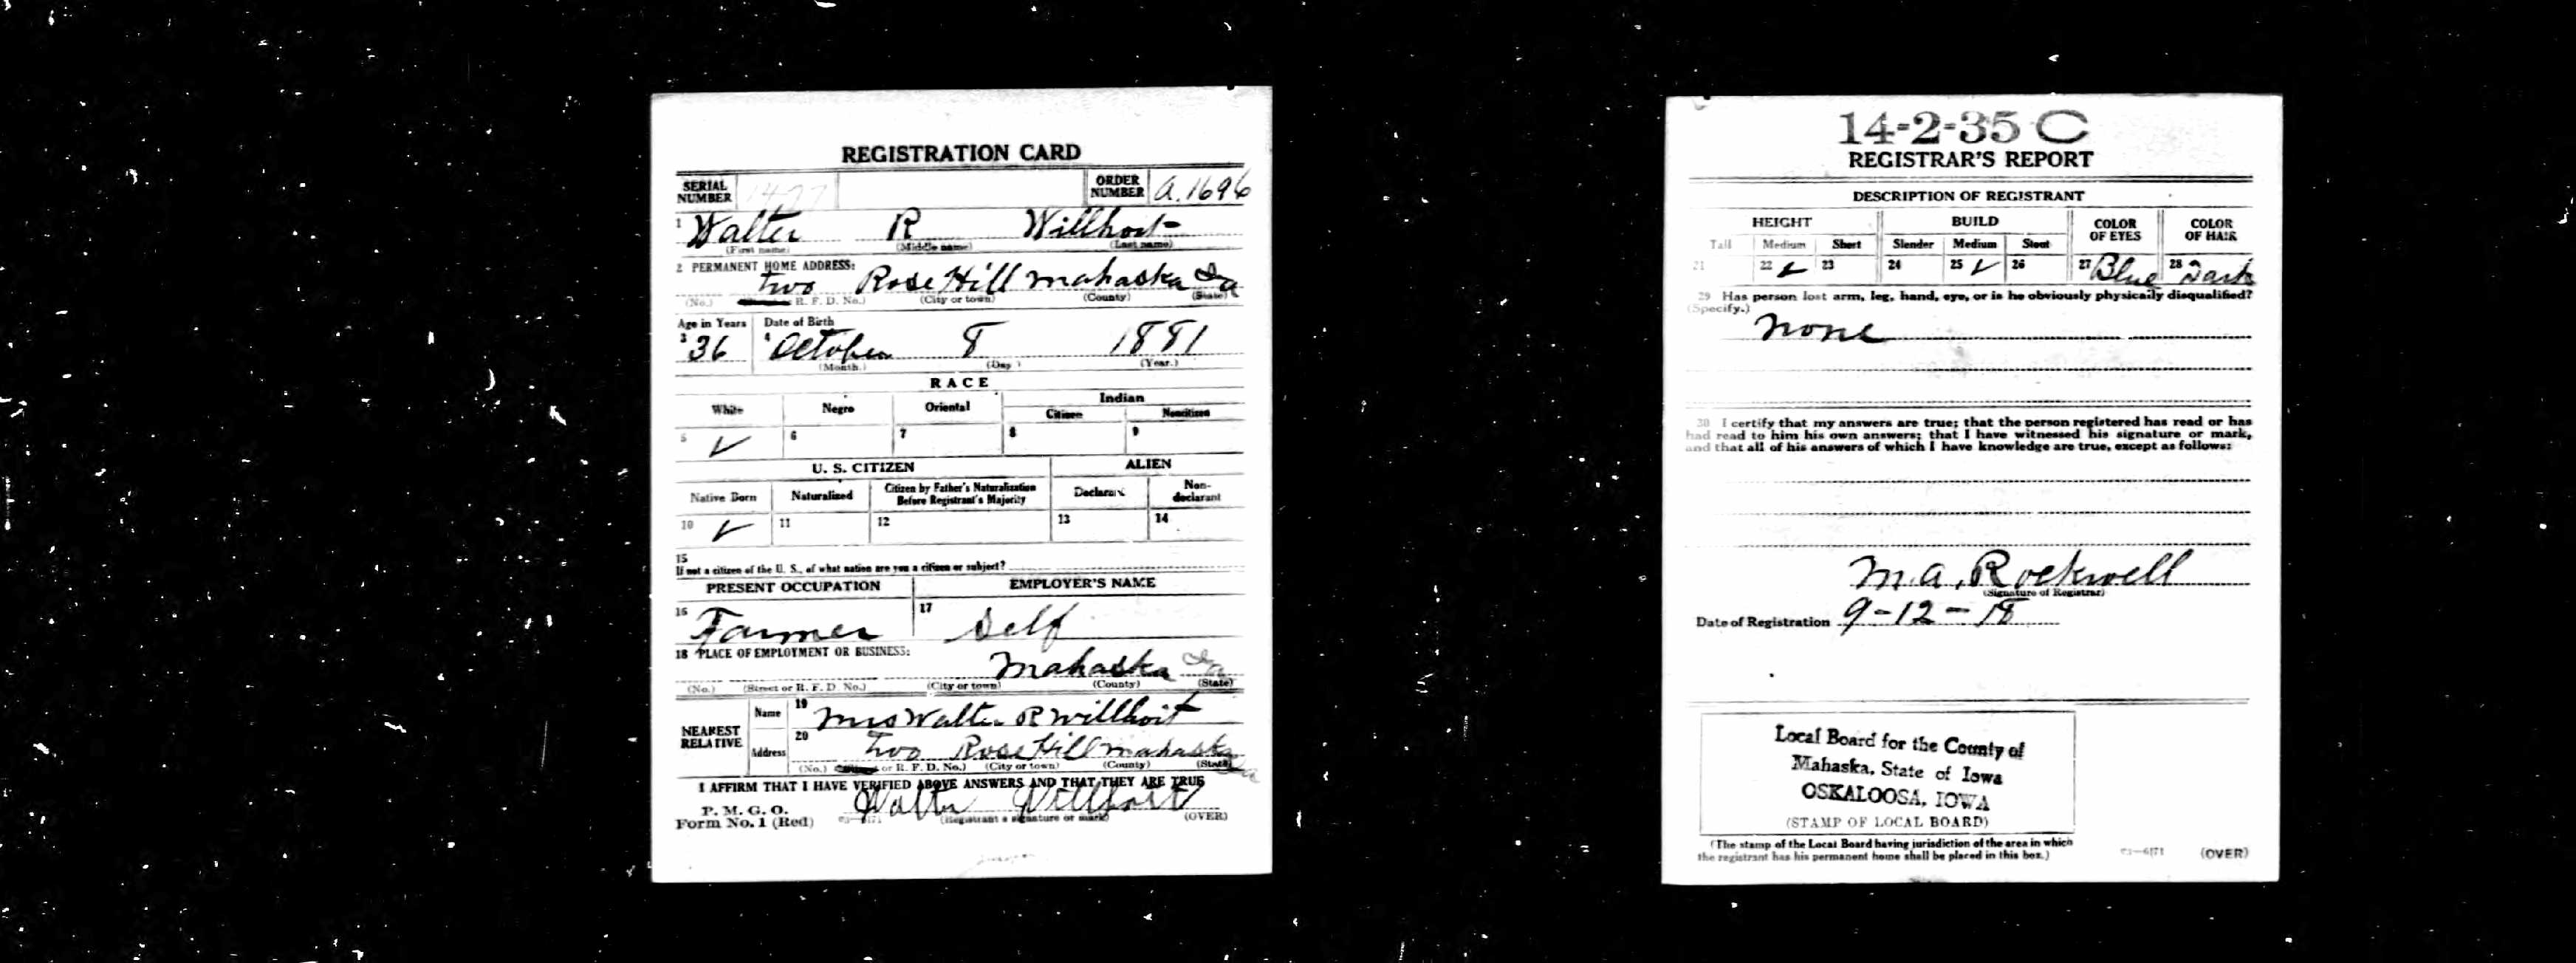 REGISTRATION CARD
SERIAL NUMBER 1477 ORDER NUMBER a.1696
1 Walter R Willhoit
(First name) (Middle name) (Last name)
2 PERMANENT HOME ADDRESS:
two Rose Hill Mahaska Ia
(No.) R. F. D. No.) (City or town) (County) (State)
Age in Years Date of Birth
3 36 4 October 8 1881
(Month.) (Day) (Year.)
RACE
White Negro Oriental Indian
Citizen Noncitizen
5 ✓ 6 7 8 9
U. S. CITIZEN ALIEN
Native Born Naturalized Citizen by Father's Naturalization Before Registrant's Majority Declarant Non-declarant
10 ✓ 11 12 13 14
15
If not a citizen of the U. S., of what nation are you a citizen or subject?
PRESENT OCCUPATION EMPLOYER'S NAME
16 Farmer 17 Self
18 PLACE OF EMPLOYMENT OR BUSINESS:
Mahaska Ia
(No.) (Street or R. F. D. No.) (City or town) (County) (State)
NEAREST RELATIVE
Name 19 Mrs Walter R Willhoit
Address 20 two Rose Hill Mahaska Ia
(No.) or R. F. D. No.) (City or town) (County) (State)
I AFFIRM THAT I HAVE VERIFIED ABOVE ANSWERS AND THAT THEY ARE TRUE
P. M. G. O.
Form No. 1 (Red) 03—6171 Walter Willhoit
(Registrant's signature or mark) (OVER)
14-2-35 C
REGISTRAR'S REPORT
DESCRIPTION OF REGISTRANT
HEIGHT BUILD COLOR OF EYES COLOR OF HAIR
Tall Medium Short Slender Medium Stout
21 22 ✓ 23 24 25 ✓ 26 27 Blue 28 Dark
29 Has person lost arm, leg, hand, eye, or is he obviously physically disqualified?
(Specify.)
None
30 I certify that my answers are true; that the person registered has read or has
had read to him his own answers; that I have witnessed his signature or mark,
and that all of his answers of which I have knowledge are true, except as follows:
M.A. Rockwell
(Signature of Registrar)
Date of Registration 9-12-18
Local Board for the County of
Mahaska, State of Iowa
OSKALOOSA, IOWA
(STAMP OF LOCAL BOARD)
(The stamp of the Local Board having jurisdiction of the area in which
the registrant has his permanent home shall be placed in this box.)
03—6171 (OVER)